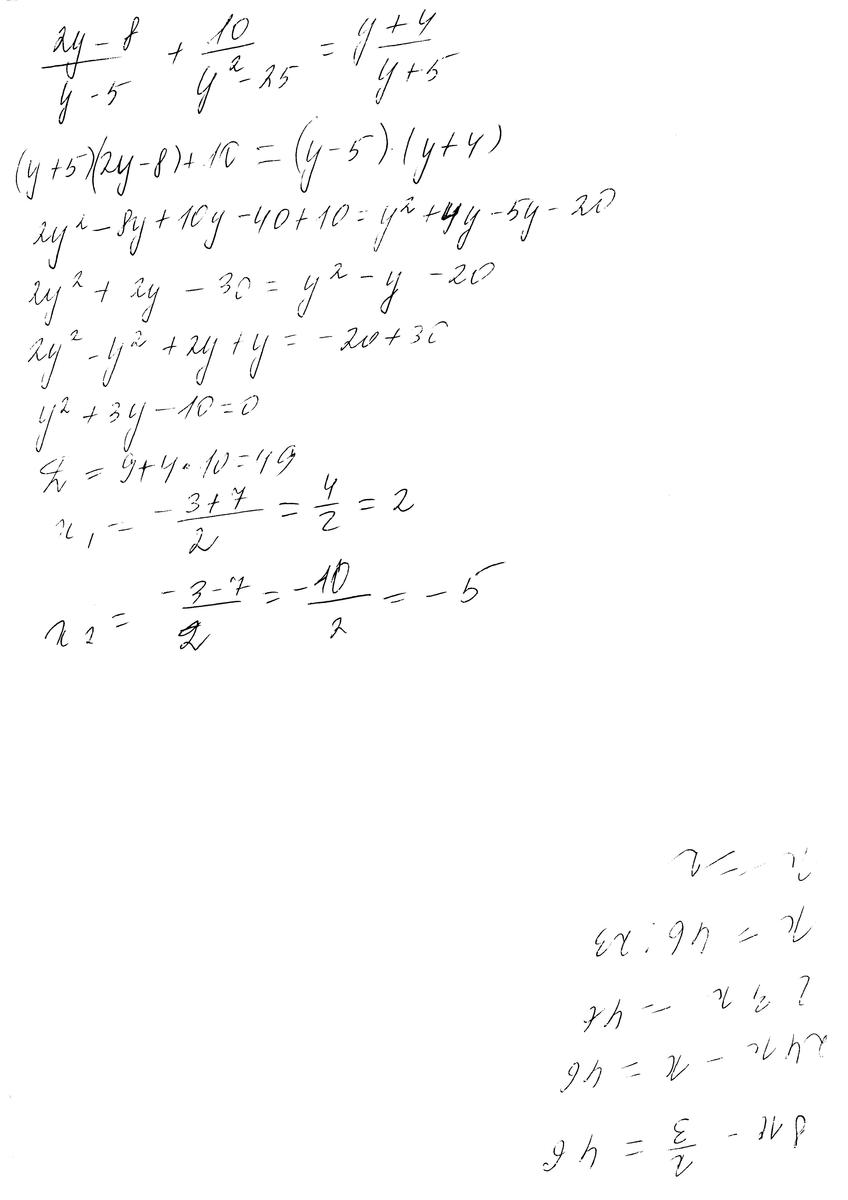 (2y-8)/(y-5) + 10/(y²-25) = (y+4)/(y+5)
(y+5)(2y-8)+10=(y-5)·(y+4)
2y²-8y+10y-40+10=y²+4y-5y-20
2y²+2y-30=y²-y-20
2y²-y²+2y+y=-20+30
y²+3y-10=0
D=9+4·10=49
x₁=(-3+7)/2=4/2=2
x₂=(-3-7)/2=-10/2=-5
8x-x/3=46
24x-x=46
23x=
x=46:23
x=2